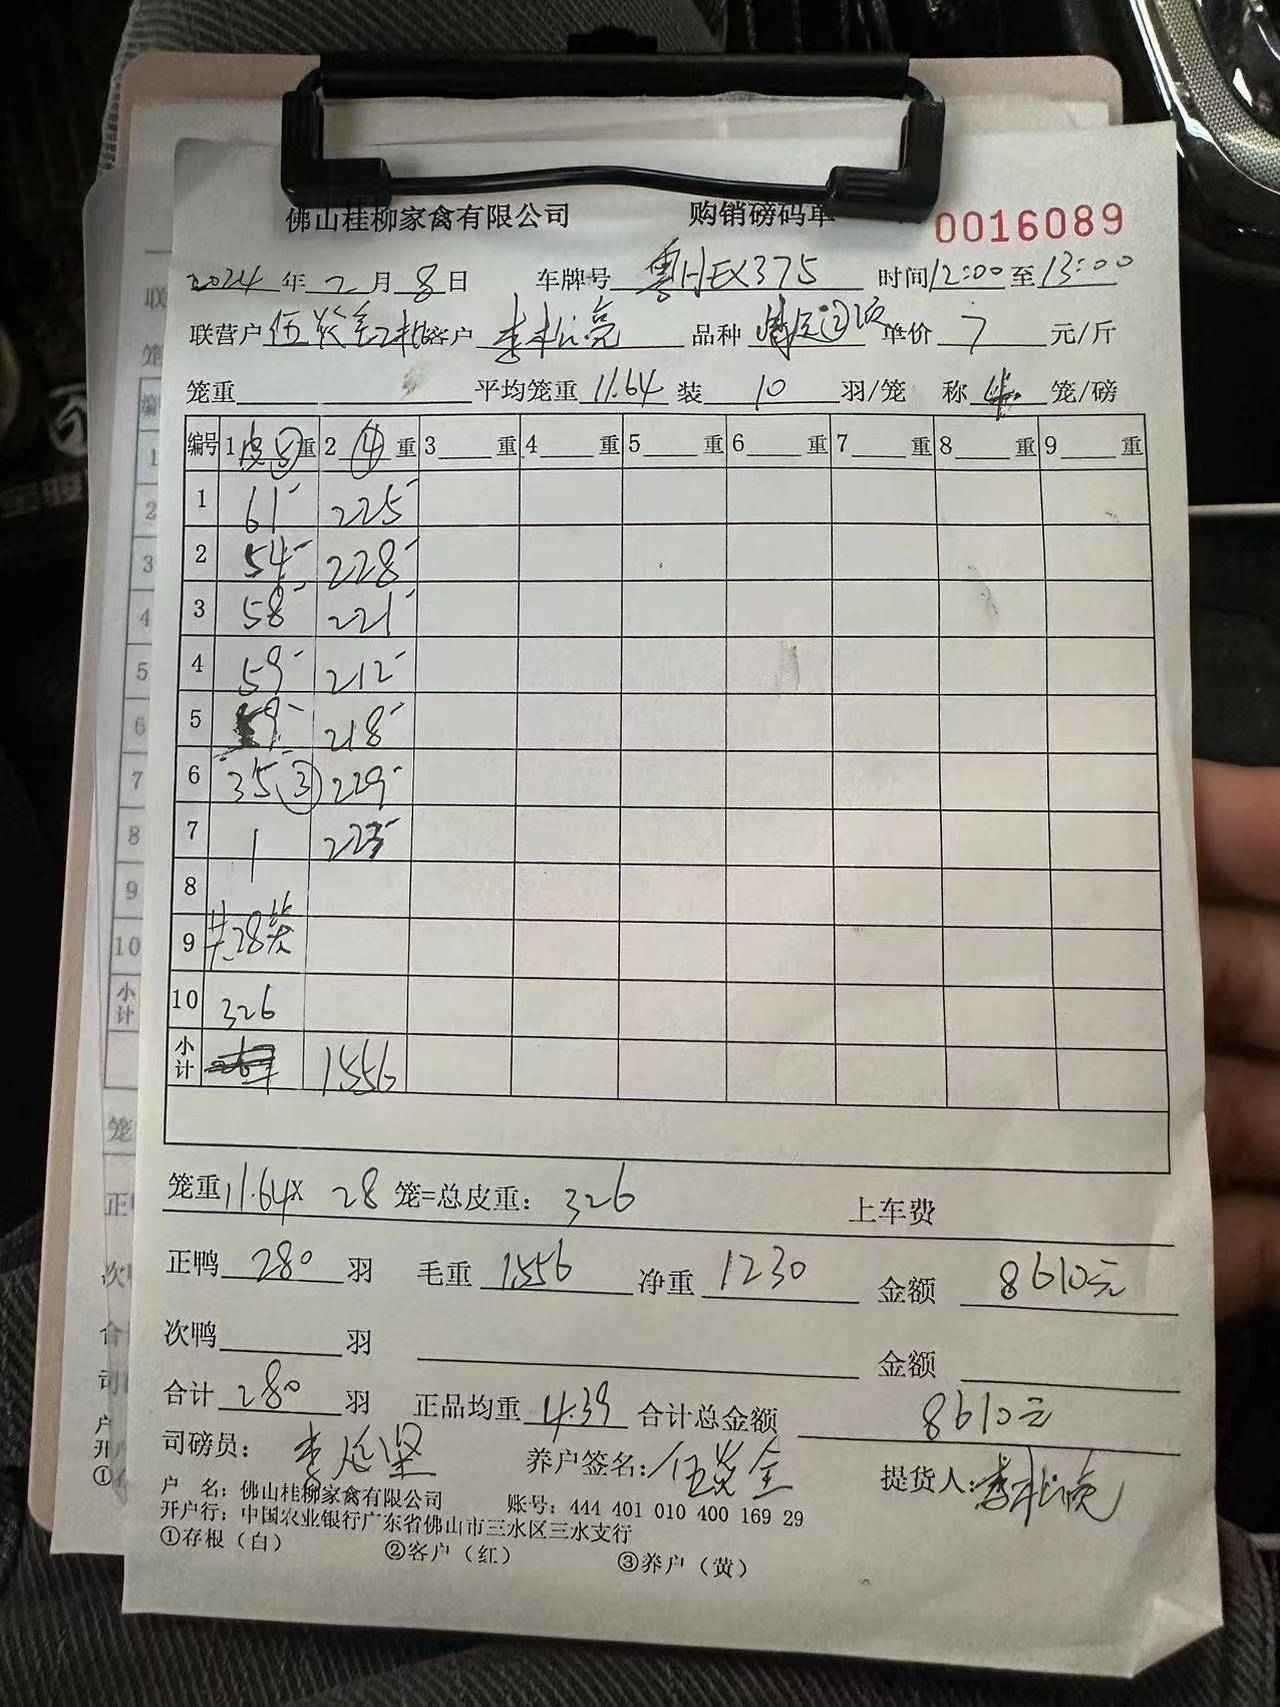 佛山桂柳家禽有限公司 购销磅码单 0016089
2024年2月8日 车牌号 粤HEX375 时间12:00至13:00
联营户 客户 李松亮 品种 单价 7 元/斤
笼重 平均笼重 11.64 装 10 羽/笼 称 笼/磅
编号 1 皮⑤重 2 ④ 重 3 重 4 重 5 重 6 重 7 重 8 重 9 重
1 61 225
2 54 228
3 58 221
4 59 212
5 59 218
6 35 ③ 229
7 223
8
9 共28笼
10 326
小计 1556
笼重11.64X 28 笼=总皮重: 326 上车费
正鸭 280 羽 毛重 1556 净重 1230 金额 8610元
次鸭 羽 金额
合计 280 羽 正品均重 4.39 合计总金额 8610元
司磅员: 李延坚 养户签名: 提货人: 李松亮
户 名: 佛山桂柳家禽有限公司 账号: 444 401 010 400 169 29
开户行: 中国农业银行广东省佛山市三水区三水支行
①存根(白) ②客户(红) ③养户(黄)